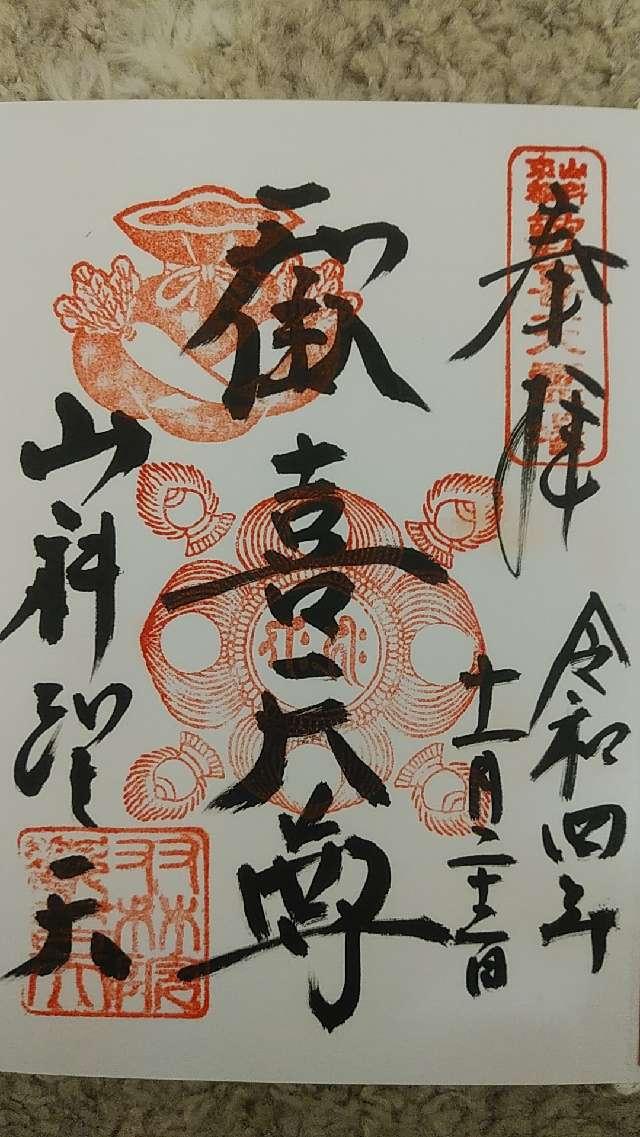 山科
京都
奉拝
令和四年
十一月
歓喜天尊
山科聖天
双林院